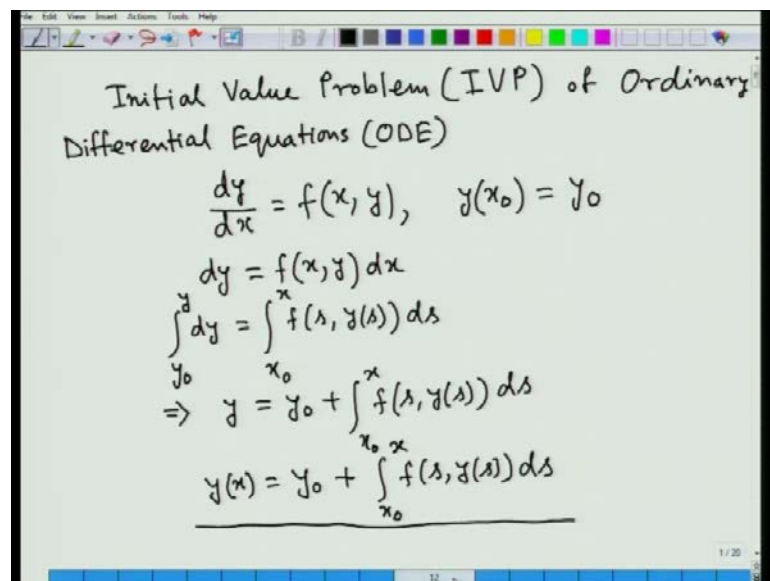 File Edit View Insert Actions Tools Help
Initial Value Problem (IVP) of Ordinary
Differential Equations (ODE)
dy/dx = f(x, y), y(x₀) = y₀
dy = f(x, y) dx
∫_{y₀}^{y} dy = ∫_{x₀}^{x} f(s, y(s)) ds
⇒ y = y₀ + ∫_{x₀}^{x} f(s, y(s)) ds
y(x) = y₀ + ∫_{x₀}^{x} f(s, y(s)) ds
1/20
12